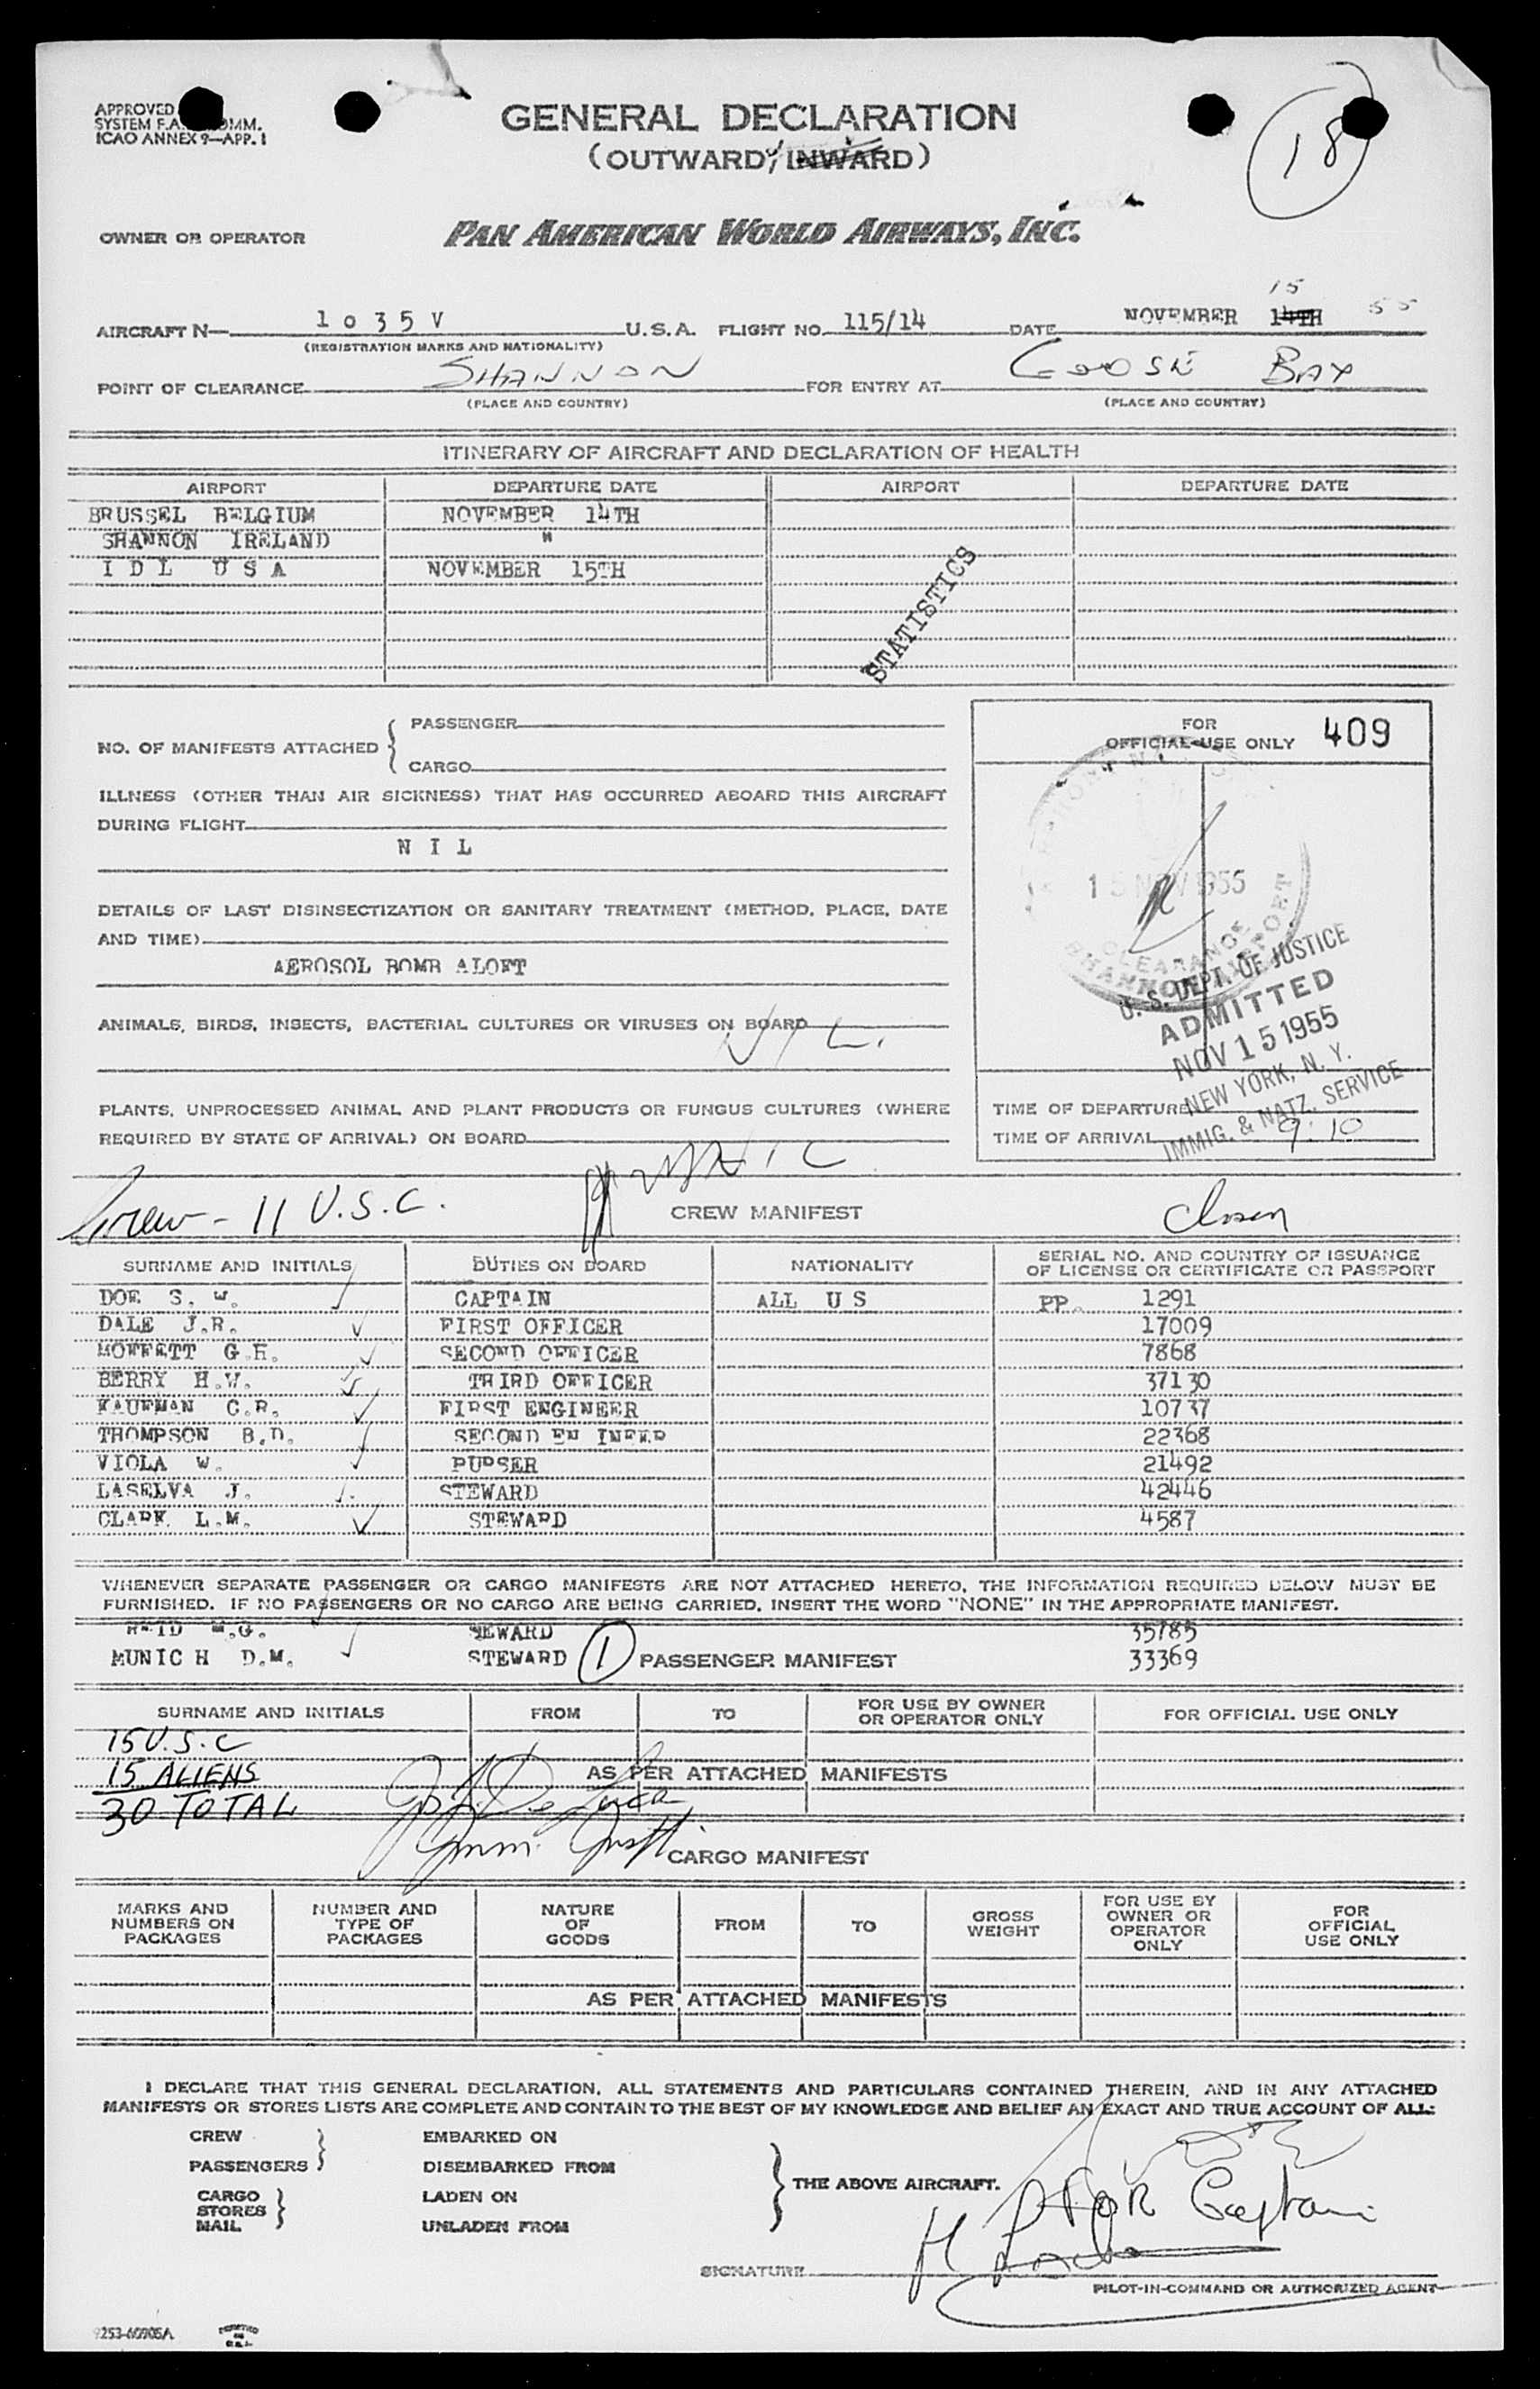 APPROVED
SYSTEM F.A. COMM.
ICAO ANNEX 9—APP. I
GENERAL DECLARATION
(OUTWARD/INWARD)
18
OWNER OR OPERATOR
PAN AMERICAN WORLD AIRWAYS, INC.
15
AIRCRAFT N— 1 0 3 5 V U.S.A. FLIGHT NO. 115/14 DATE NOVEMBER 14TH 55
(REGISTRATION MARKS AND NATIONALITY)
POINT OF CLEARANCE SHANNON FOR ENTRY AT GOOSE BAY
(PLACE AND COUNTRY) (PLACE AND COUNTRY)
ITINERARY OF AIRCRAFT AND DECLARATION OF HEALTH
AIRPORT DEPARTURE DATE AIRPORT DEPARTURE DATE
BRUSSEL BELGIUM NOVEMBER 14TH
SHANNON IRELAND "
I D L U S A NOVEMBER 15TH
STATISTICS
NO. OF MANIFESTS ATTACHED { PASSENGER
CARGO
FOR
OFFICIAL USE ONLY 409
ILLNESS (OTHER THAN AIR SICKNESS) THAT HAS OCCURRED ABOARD THIS AIRCRAFT
DURING FLIGHT
N I L
15 NOV 1955
CLEARANCE
SHANNON AIRPORT
DETAILS OF LAST DISINSECTIZATION OR SANITARY TREATMENT (METHOD, PLACE, DATE
AND TIME)
AEROSOL BOMB ALOFT
U. S. DEPT. OF JUSTICE
ADMITTED
NOV 15 1955
NEW YORK, N. Y.
IMMIG. & NATZ. SERVICE
ANIMALS, BIRDS, INSECTS, BACTERIAL CULTURES OR VIRUSES ON BOARD NIL.
PLANTS, UNPROCESSED ANIMAL AND PLANT PRODUCTS OR FUNGUS CULTURES (WHERE
REQUIRED BY STATE OF ARRIVAL) ON BOARD NIL
TIME OF DEPARTURE
TIME OF ARRIVAL 9:10
Crew - 11 U.S.C.
CREW MANIFEST
SURNAME AND INITIALS DUTIES ON BOARD NATIONALITY SERIAL NO. AND COUNTRY OF ISSUANCE
OF LICENSE OR CERTIFICATE OR PASSPORT
DOE S. W. CAPTAIN ALL U S PP. 1291
DALE J.R. FIRST OFFICER 17009
MOFFETT G.H. SECOND OFFICER 7868
BERRY H.W. THIRD OFFICER 37130
KAUFMAN C.R. FIRST ENGINEER 10737
THOMPSON B.D. SECOND EN INEER 22368
VIOLA W. PURSER 21492
LASELVA J. STEWARD 42446
CLARK L.M. STEWARD 4587
WHENEVER SEPARATE PASSENGER OR CARGO MANIFESTS ARE NOT ATTACHED HERETO, THE INFORMATION REQUIRED BELOW MUST BE
FURNISHED. IF NO PASSENGERS OR NO CARGO ARE BEING CARRIED, INSERT THE WORD "NONE" IN THE APPROPRIATE MANIFEST.
REID M.G. STEWARD 35785
MUNICH D.M. STEWARD 1 33369
PASSENGER MANIFEST
SURNAME AND INITIALS FROM TO FOR USE BY OWNER
OR OPERATOR ONLY FOR OFFICIAL USE ONLY
15 U.S.C
15 ALIENS
30 TOTAL
AS PER ATTACHED MANIFESTS
CARGO MANIFEST
MARKS AND
NUMBERS ON
PACKAGES
NUMBER AND
TYPE OF
PACKAGES
NATURE
OF
GOODS
FROM
TO
GROSS
WEIGHT
FOR USE BY
OWNER OR
OPERATOR
ONLY
FOR
OFFICIAL
USE ONLY
AS PER ATTACHED MANIFESTS
I DECLARE THAT THIS GENERAL DECLARATION, ALL STATEMENTS AND PARTICULARS CONTAINED THEREIN, AND IN ANY ATTACHED
MANIFESTS OR STORES LISTS ARE COMPLETE AND CONTAIN TO THE BEST OF MY KNOWLEDGE AND BELIEF AN EXACT AND TRUE ACCOUNT OF ALL:
CREW EMBARKED ON
PASSENGERS DISEMBARKED FROM
CARGO LADEN ON
STORES
MAIL UNLADEN FROM
THE ABOVE AIRCRAFT.
FOR Captain
SIGNATURE
PILOT-IN-COMMAND OR AUTHORIZED AGENT
9253-60905A